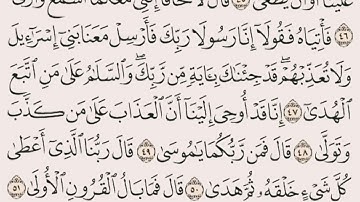 عَلَيۡنَآ أَوۡ أَن يَطۡغَىٰ ٤٥ قَالَ لَا تَخَافَآ إِنَّنِي مَعَكُمَآ أَسۡمَعُ وَأَرَىٰ
٤٦ فَأۡتِيَاهُ فَقُولَآ إِنَّا رَسُولَا رَبِّكَ فَأَرۡسِلۡ مَعَنَا بَنِيٓ إِسۡرَٰٓءِيلَ
وَلَا تُعَذِّبۡهُمۡۖ قَدۡ جِئۡنَٰكَ بِـَٔايَةٖ مِّن رَّبِّكَۖ وَٱلسَّلَٰمُ عَلَىٰ مَنِ ٱتَّبَعَ
ٱلۡهُدَىٰٓ ٤٧ إِنَّا قَدۡ أُوحِيَ إِلَيۡنَآ أَنَّ ٱلۡعَذَابَ عَلَىٰ مَن كَذَّبَ
وَتَوَلَّىٰ ٤٨ قَالَ فَمَن رَّبُّكُمَا يَٰمُوسَىٰ ٤٩ قَالَ رَبُّنَا ٱلَّذِيٓ أَعۡطَىٰ
كُلَّ شَيۡءٍ خَلۡقَهُۥ ثُمَّ هَدَىٰ ٥٠ قَالَ فَمَا بَالُ ٱلۡقُرُونِ ٱلۡأُولَىٰ ٥١